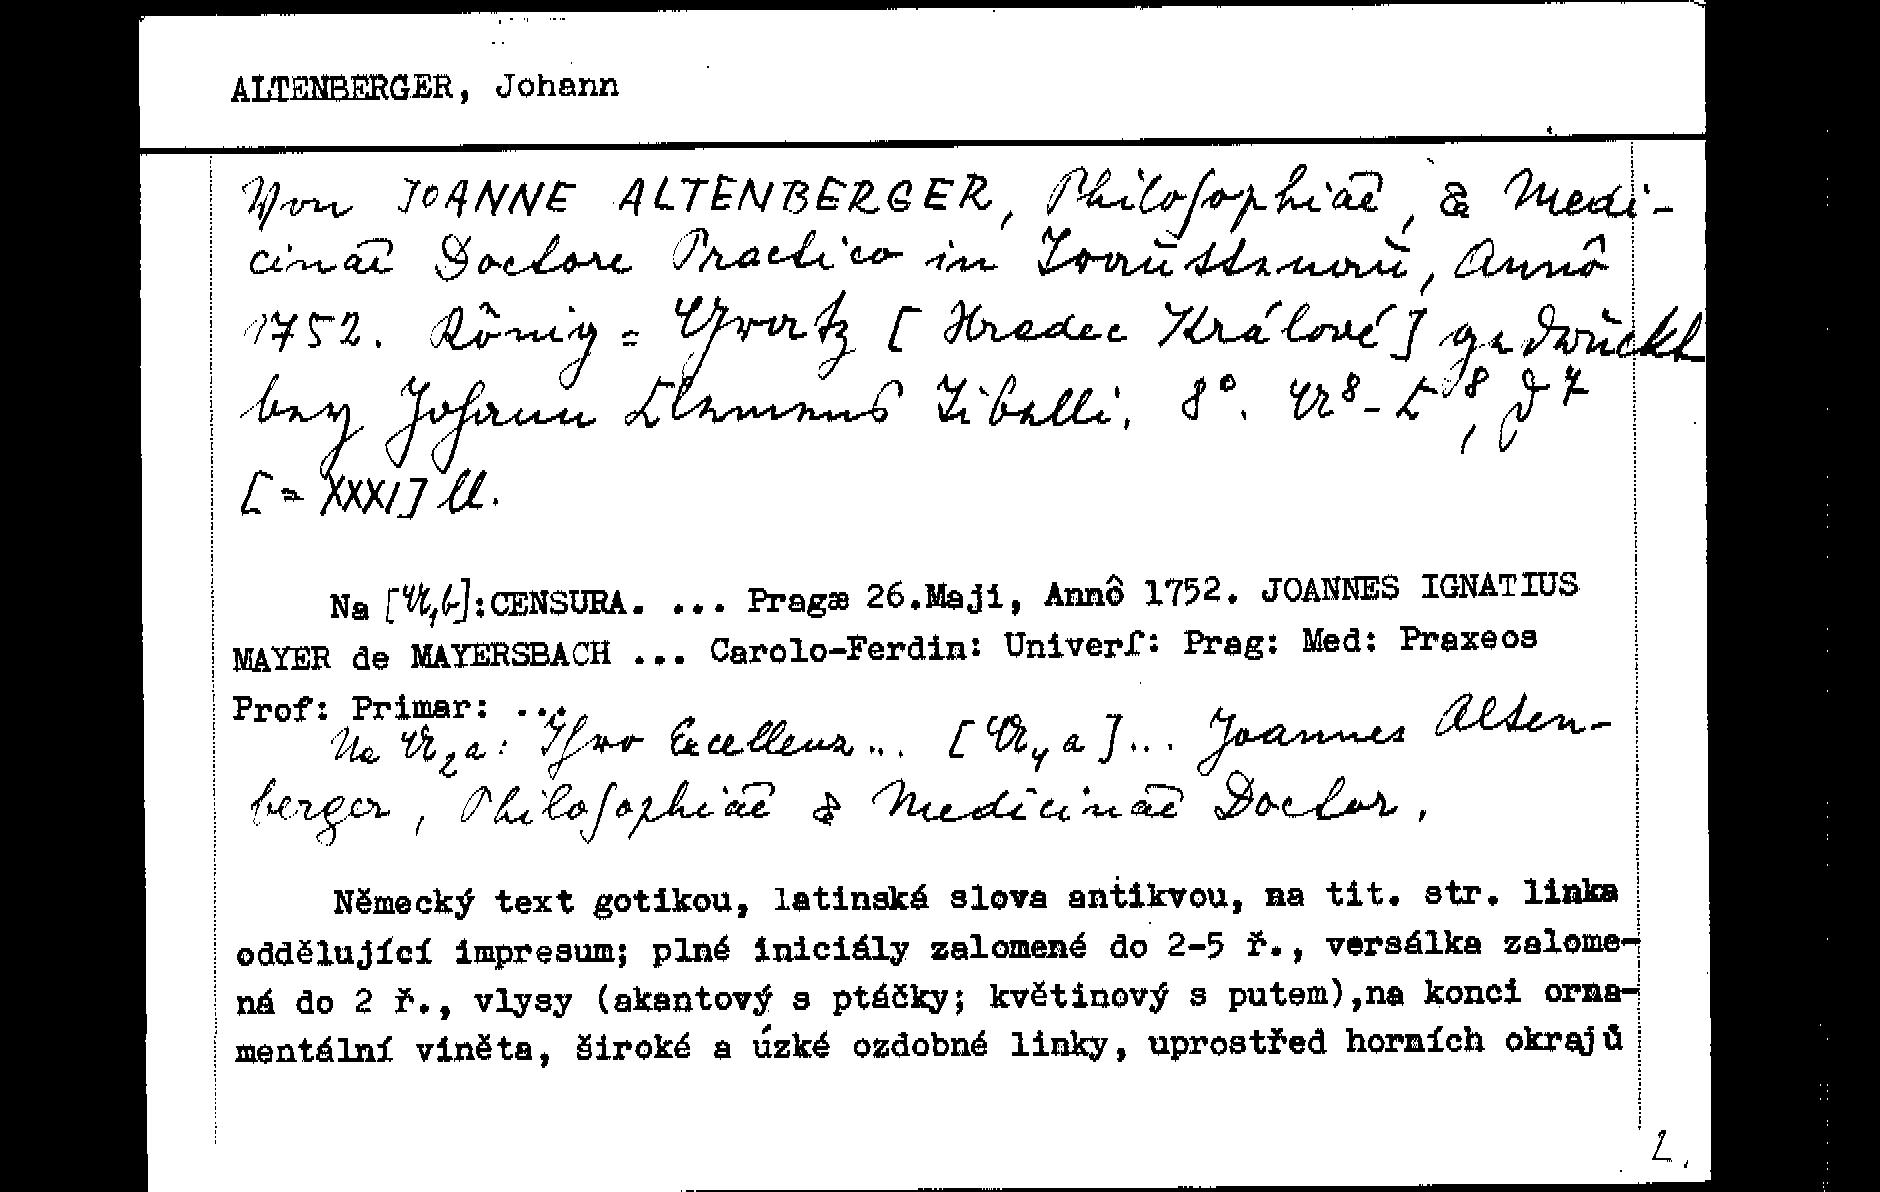 ALTENBERGER, Johann
Von JOANNE ALTENBERGER, Philoſophiæ, & Medi-
cinæ Doctore Practico in Traŭttenaŭ, Annô
1752. König=Gratz [Hradec Králové] gedrŭckt
bey Johann Clemens Tibelli. 8°. A⁸-C⁸, D⁷
[=XXXI] ll.
Na [A₁b]:CENSURA. ... Pragæ 26.Maji, Annô 1752. JOANNES IGNATIUS
MAYER de MAYERSBACH ... Carolo-Ferdin: Univerſ: Prag: Med: Praxeos
Prof: Primar: ...
Na A₂a: Ihro Excellenz... [A₄a]... Joannes Alten-
berger, Philoſophiæ & Medicinæ Doctor.
Německý text gotikou, latinská slova antikvou, na tit. str. linka
oddělující impresum; plné iniciály zalomené do 2-5 ř., versálka zalome-
ná do 2 ř., vlysy (akantový s ptáčky; květinový s putem),na konci orna-
mentální viněta, široké a úzké ozdobné linky, uprostřed horních okrajů
2.